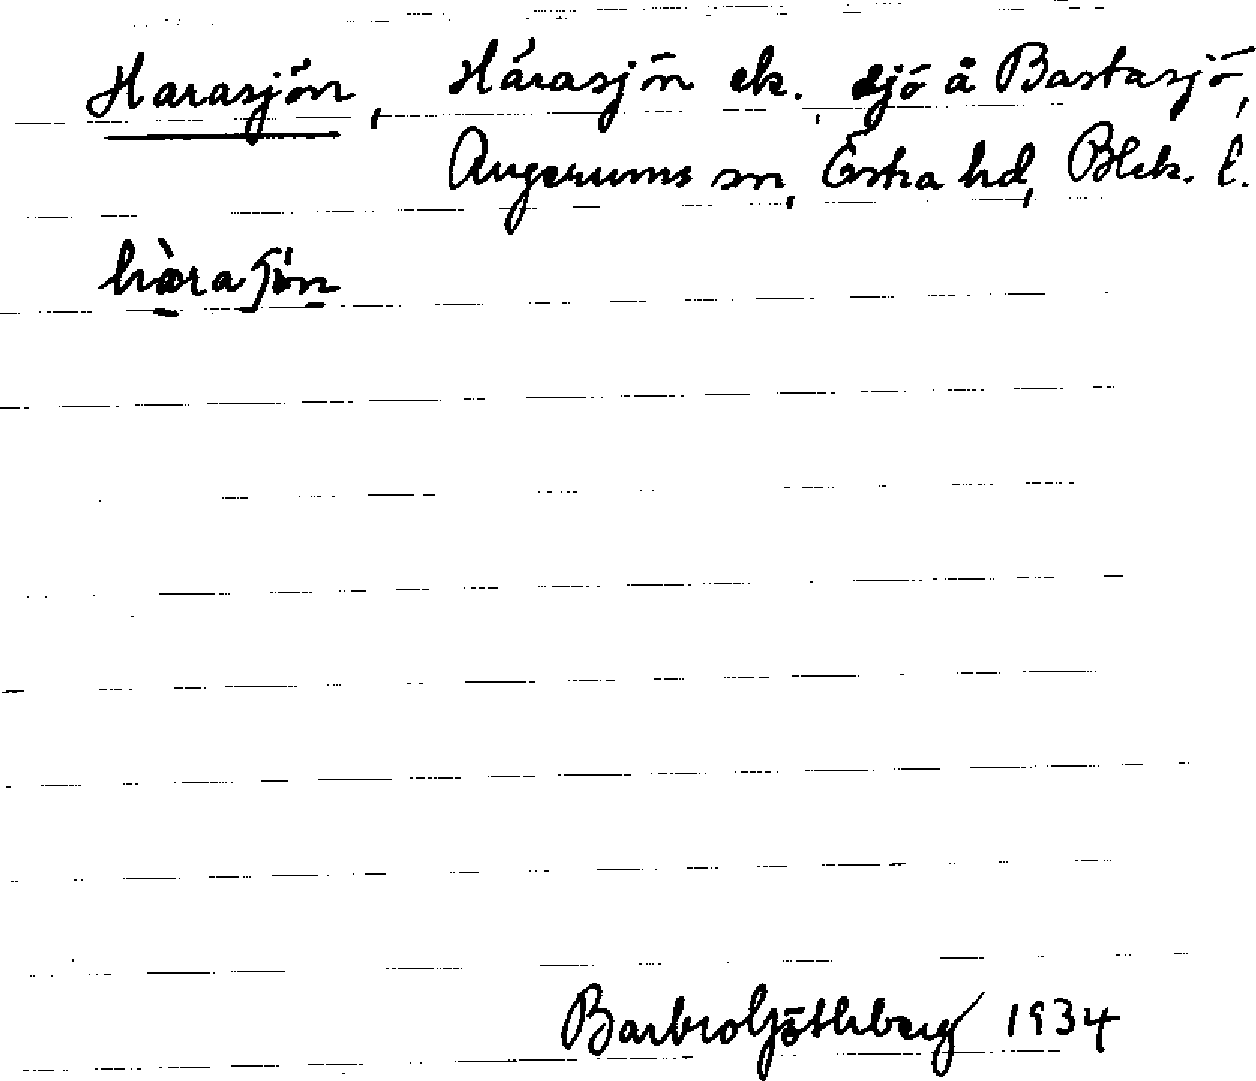 Harasjön, Hárasjön ek. sjö å Bastasjö,
Augerums sn, Östra hd, Blek. l.
hàraʃön
Barbro Göthberg 1934